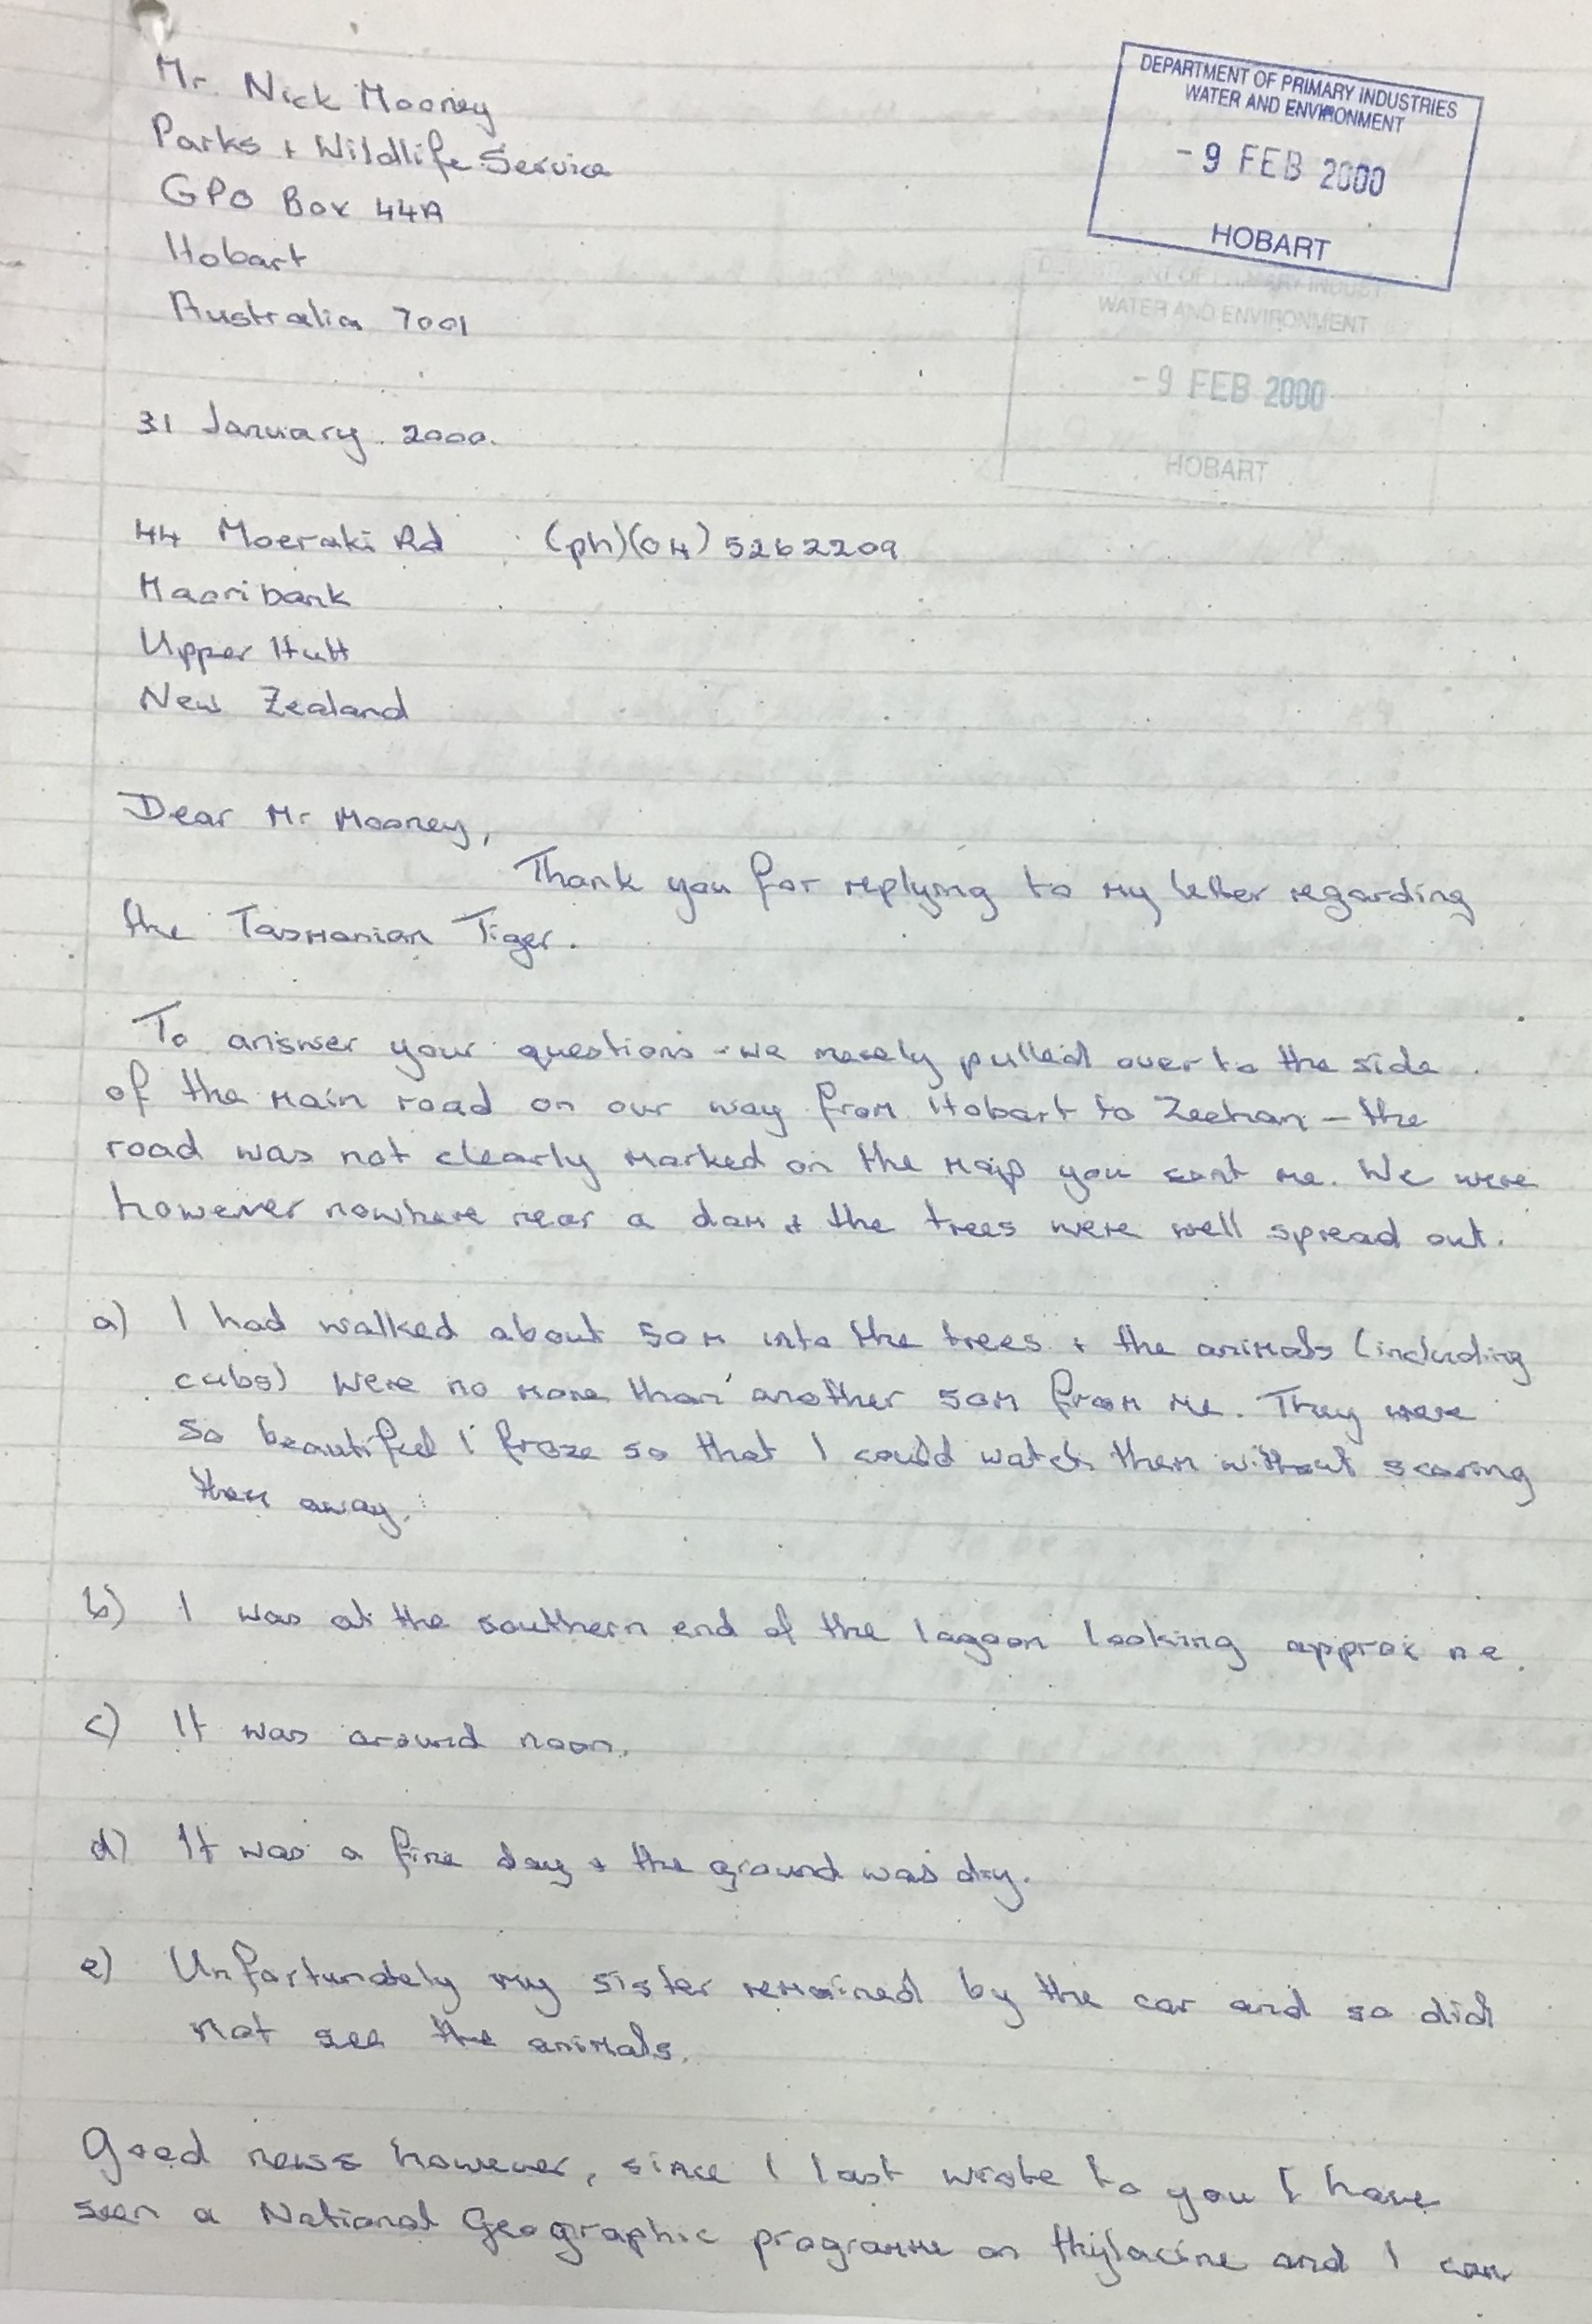 Mr. Nick Mooney
Parks + Wildlife Service
GPO Box 44A
Hobart
Australia 7001
DEPARTMENT OF PRIMARY INDUSTRIES
WATER AND ENVIRONMENT
- 9 FEB 2000
HOBART
DEPARTMENT OF PRIMARY INDUST
WATER AND ENVIRONMENT
- 9 FEB 2000
HOBART
31 January. 2000.
44 Moeraki Rd (ph)(04) 5262209
Maoribank
Upper Hutt
New Zealand
Dear Mr Mooney,
Thank you for replying to my letter regarding
the Tasmanian Tiger.
To answer your questions - we merely pulled over to the side
of the main road on our way from Hobart to Zeehan - the
road was not clearly marked on the map you sent me. We were
however nowhere near a dam + the trees were well spread out.
a) I had walked about 50m into the trees + the animals (including
cubs) were no more than another 50m from me. They were
so beautiful I froze so that I could watch them without scaring
them away.
b) I was at the southern end of the lagoon looking approx ne.
c) It was around noon.
d) It was a fine day + the ground was dry.
e) Unfortunately my sister remained by the car and so did
not see the animals.
Good news however, since I last wrote to you I have
seen a National Geographic programme on thylacine and I can